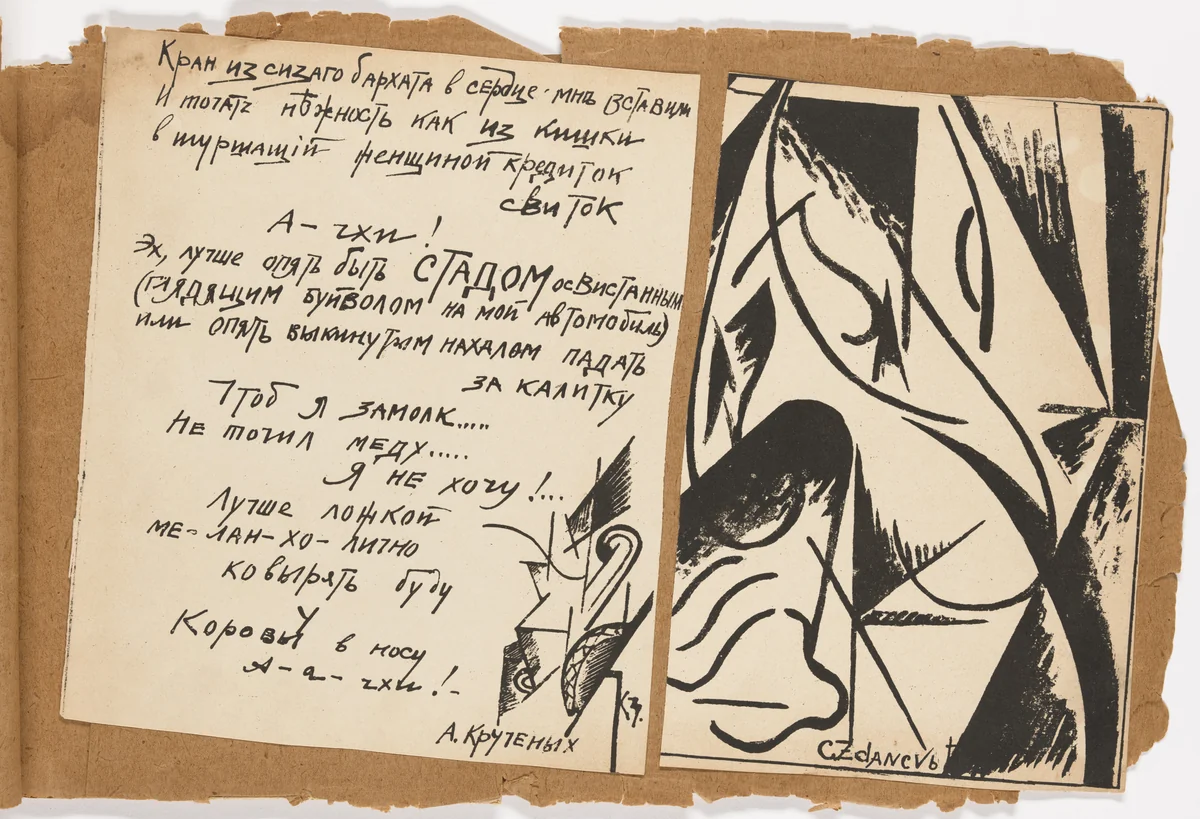 Кран из сизаго бархата в сердце мнѣ вставили
И точатъ нѣжность как из кишки
в шуршащій женщиной кредиток
свиток
А – чхи!
Эх, лучше опять быть СТАДОМ освистанным
(глядящим буйволом на мой автомобиль)
или опять выкинутым нахалом падать
за калитку
Чтоб я замолк.....
Не точил меду.....
Я не хочу!...
Лучше ложкой
ме-лан-хо-лично
ковырять буду
Коровы У в носу
А-а-чхи!-
А. Крученых
КЗ.
CZdANCVb